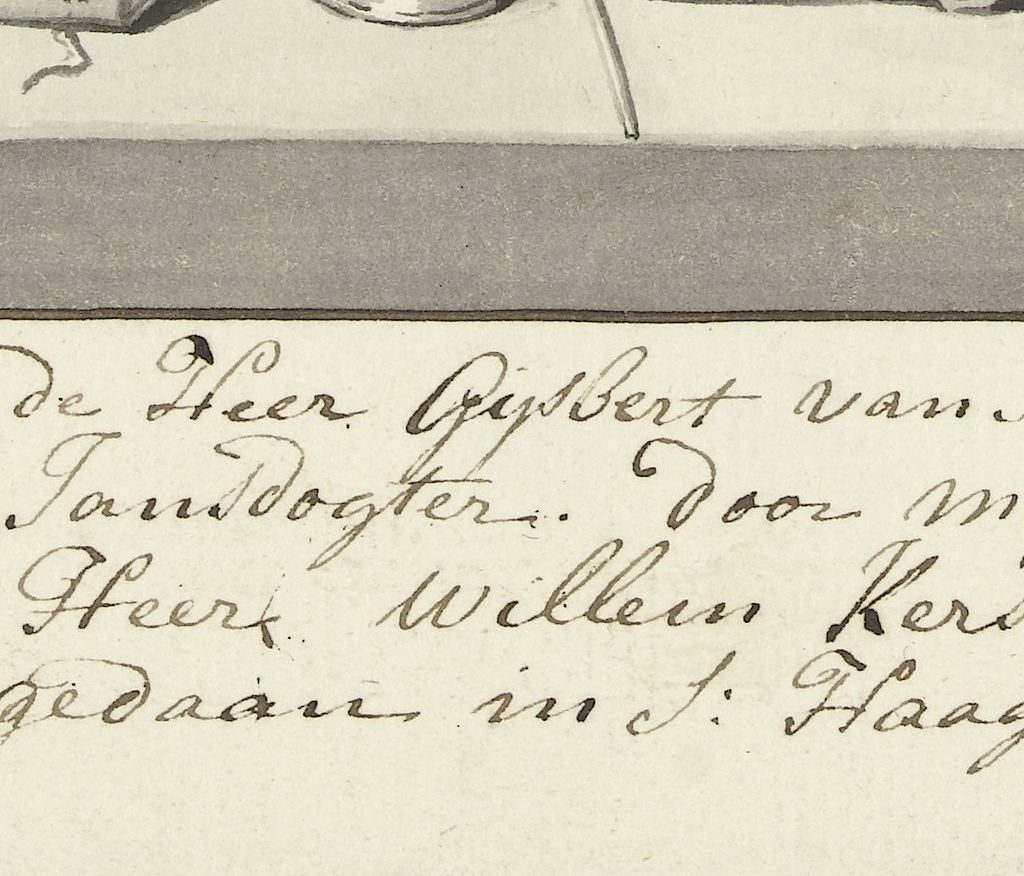 de Heer Gijsbert van
Jansdogter. door m
Heer Willem Kers
gedaan in S: Haag